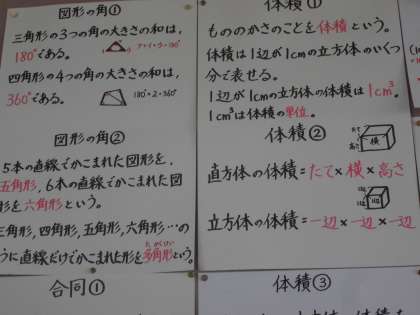 図形の角①
三角形の3つの角の大きさの和は、
180°である。
四角形の4つの角の大きさの和は、
360°である。
180°×2=360°
図形の角②
5本の直線でかこまれた図形を、
五角形、6本の直線でかこまれた図
形を六角形という。
三角形、四角形、五角形、六角形…の
うに直線だけでかこまれた形を多角形という。
たかくけい
合同①
体積①
もののかさのことを体積という。
体積は1辺が1cmの立方体のいくつ
分で表せる。
1辺が1cmの立方体の体積は1cm³。
1cm³は体積の単位。
体積②
たて
高さ
横
直方体の体積=たて×横×高さ
立方体の体積=一辺×一辺×一辺
体積③